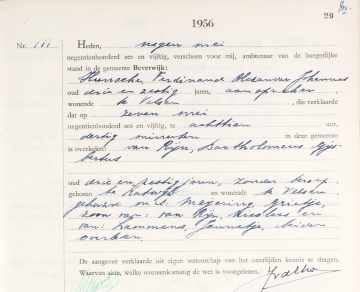 1956
29
Nr. 111
Heden, negen mei
negentienhonderd zes en vijftig, verscheen voor mij, ambtenaar van de burgerlijke
stand in de gemeente Beverwijk:
Ferdinand Alexander Johannes
oud drie en zestig jaren, aanspreker
wonende te Velsen, die verklaarde
dat op zeven mei
negentienhonderd zes en vijftig, te achttien uur,
dertig minuten in deze gemeente
is overleden: van Rijn, Bartholomeus Gijs-
bertus
oud drie en zestig jaren, zonder beroep
geboren te Katwijk en wonende te Velsen
gehuwd met Meijering, Grietje,
zoon van: van Rijn, Nicolaas en
van: Lammens, Jannetje, beiden
overleden.
De aangever verklaarde uit eigen wetenschap van het overlijden kennis te dragen.
Waarvan akte, welke overeenkomstig de wet is voorgelezen.